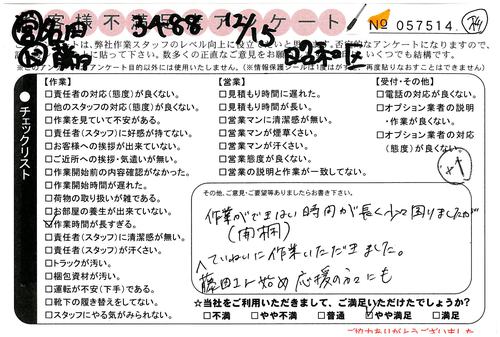 お客様不満足アンケート
№ 057514
3A88 12/15
【作業】
□責任者の対応(態度)が良くない。
□他のスタッフの対応(態度)が良くない。
□作業を見ていて不安がある。
□責任者(スタッフ)に好感が持てない。
□お客様への挨拶が出来ていない。
□ご近所への挨拶・気遣いが無い。
□作業開始前の内容確認がなかった。
□作業開始時間が遅れた。
□荷物の取り扱いが雑である。
□お部屋の養生が出来ていない。
□作業時間が長すぎる。
□責任者(スタッフ)に清潔感が無い。
□責任者(スタッフ)が汗くさい。
□トラックが汚い。
□梱包資材が汚い。
□運転が不安(下手)である。
□靴下の履き替えをしてない。
□スタッフにやる気がみられない。
チェックリスト
【営業】
□見積もり時間に遅れた。
□見積もり時間が長い。
□営業マンに清潔感が無い。
□営業マンが煙草くさい。
□営業マンが汗くさい。
□営業態度が良くない。
□営業の説明と作業が一致してない。
【受付・その他】
□電話の対応が良くない。
□オプション業者の説明
・作業が良くない。
□オプション業者の対応
(態度)が良くない。
その他、ご意見・ご要望等ありましたらお書き下さい。
作業ができない時間が長く少々困りましたが
(開梱)
ていねいに作業いただきました。
藤田さん始め応援の方にも
☆当社をご利用いただきまして、ご満足いただけたでしょうか?
□不満 □やや不満 □普通 □やや満足 □満足
ご協力ありがとうございました